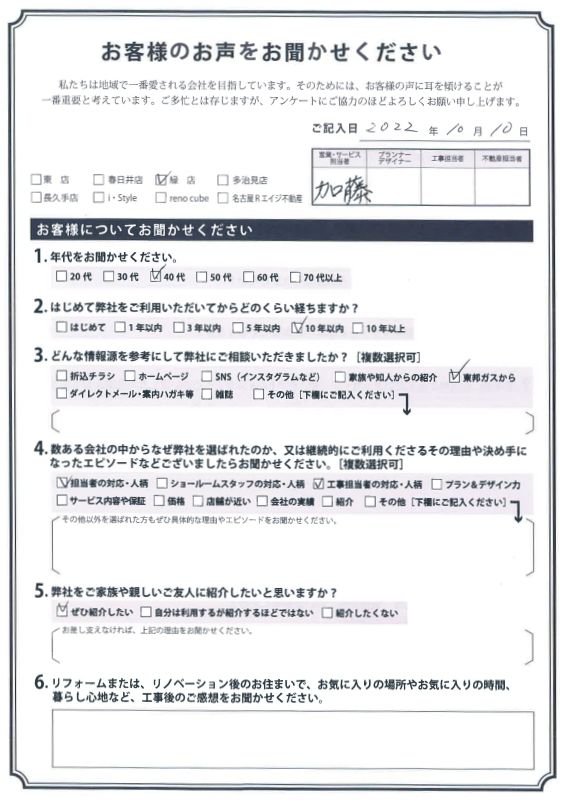 お客様のお声をお聞かせください
私たちは地域で一番愛される会社を目指しています。そのためには、お客様の声に耳を傾けることが
一番重要と考えています。ご多忙とは存じますが、アンケートにご協力のほどよろしくお願い申し上げます。
ご記入日 2022 年 10 月 10 日
営業・サービス担当者 プランナーデザイナー 工事担当者 不動産担当者
加藤
□東 店 □春日井店 ☑緑 店 □多治見店
□長久手店 □i・Style □reno cube □名古屋Rエイジ不動産
お客様についてお聞かせください
1. 年代をお聞かせください。
□20代 □30代 ☑40代 □50代 □60代 □70代以上
2. はじめて弊社をご利用いただいてからどのくらい経ちますか？
□はじめて □1年以内 □3年以内 □5年以内 ☑10年以内 □10年以上
3. どんな情報源を参考にして弊社にご相談いただきましたか？［複数選択可］
□折込チラシ □ホームページ □SNS（インスタグラムなど） □家族や知人からの紹介 ☑東邦ガスから
□ダイレクトメール・案内ハガキ等 □雑誌 □その他［下欄にご記入ください］
4. 数ある会社の中からなぜ弊社を選ばれたのか、又は継続的にご利用くださるその理由や決め手に
なったエピソードなどございましたらお聞かせください。［複数選択可］
☑担当者の対応・人柄 □ショールームスタッフの対応・人柄 ☑工事担当者の対応・人柄 □プラン＆デザイン力
□サービス内容や保証 □価格 □店舗が近い □会社の実績 □紹介 □その他［下欄にご記入ください］
その他以外を選ばれた方もぜひ具体的な理由やエピソードをお聞かせください。
5. 弊社をご家族や親しいご友人に紹介したいと思いますか？
☑ぜひ紹介したい □自分は利用するが紹介するほどではない □紹介したくない
お差し支えなければ、上記の理由をお聞かせください。
6. リフォームまたは、リノベーション後のお住まいで、お気に入りの場所やお気に入りの時間、
暮らし心地など、工事後のご感想をお聞かせください。